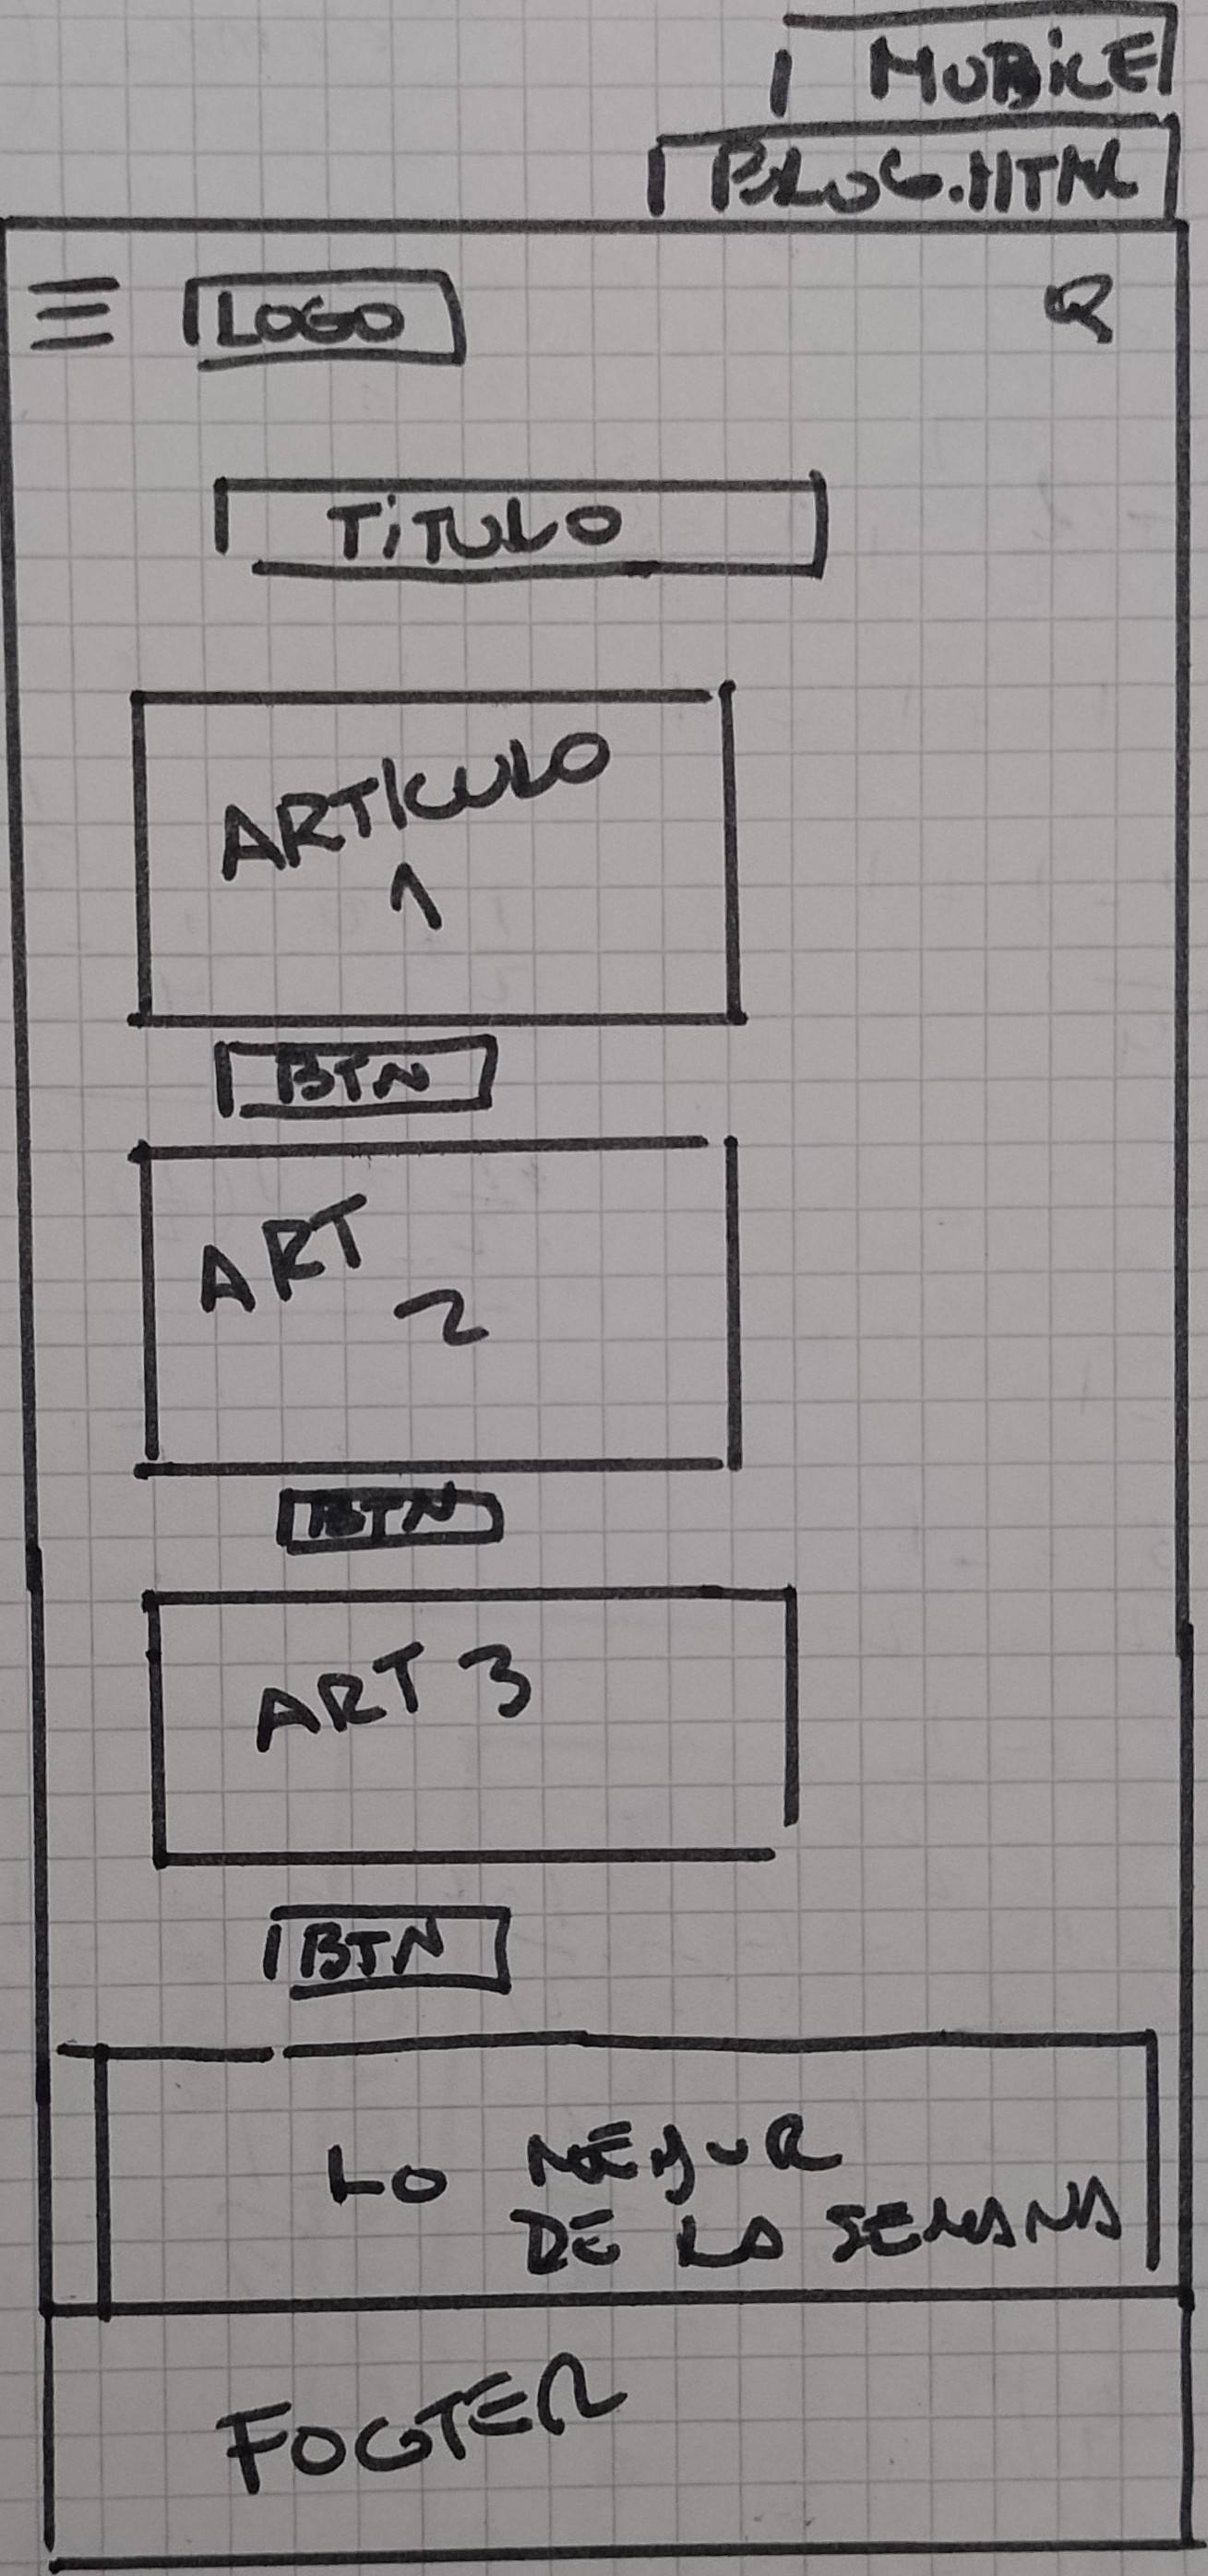 MOBILE
BLOG.HTML
LOGO
TiTULO
ARTICULO
1
BTN
ART
2
BTN
ART 3
BTN
LO MEJOR
DE LA SEMANA
FOOTER